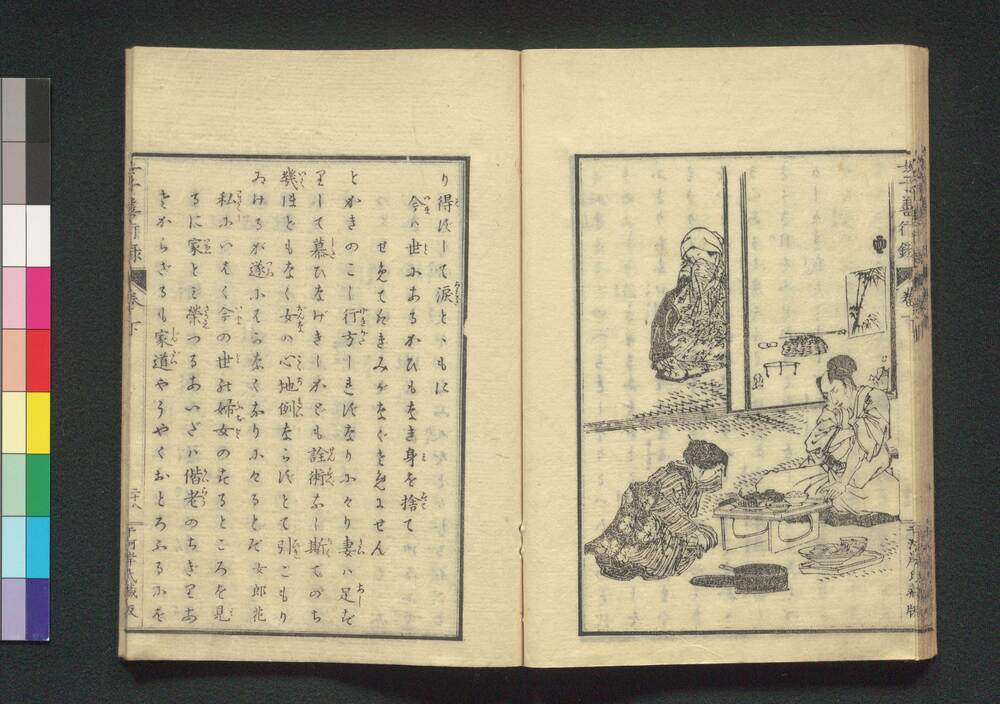 女子善行録 巻下
り得ずして涙とゝもに
今ハ世にあるかひもなき身を捨て
せめてきみがなぐさめにせん
とかきのこし行方しれずなりにけり妻ハ足ず
りして慕ひなげきしかども詮術なし斯てのち
幾ほどもなく女ハ心地例ならずとて引こもり
ゐけるが遂にはかなくなりにけるとぞ女郎花
私にいはく今の世の婦女のするところを見
るに家とみ栄つるあいだハ偕老のちぎりあ
さからざるも家道やうやくおとろふるにを
女子善行録 巻下
二十八